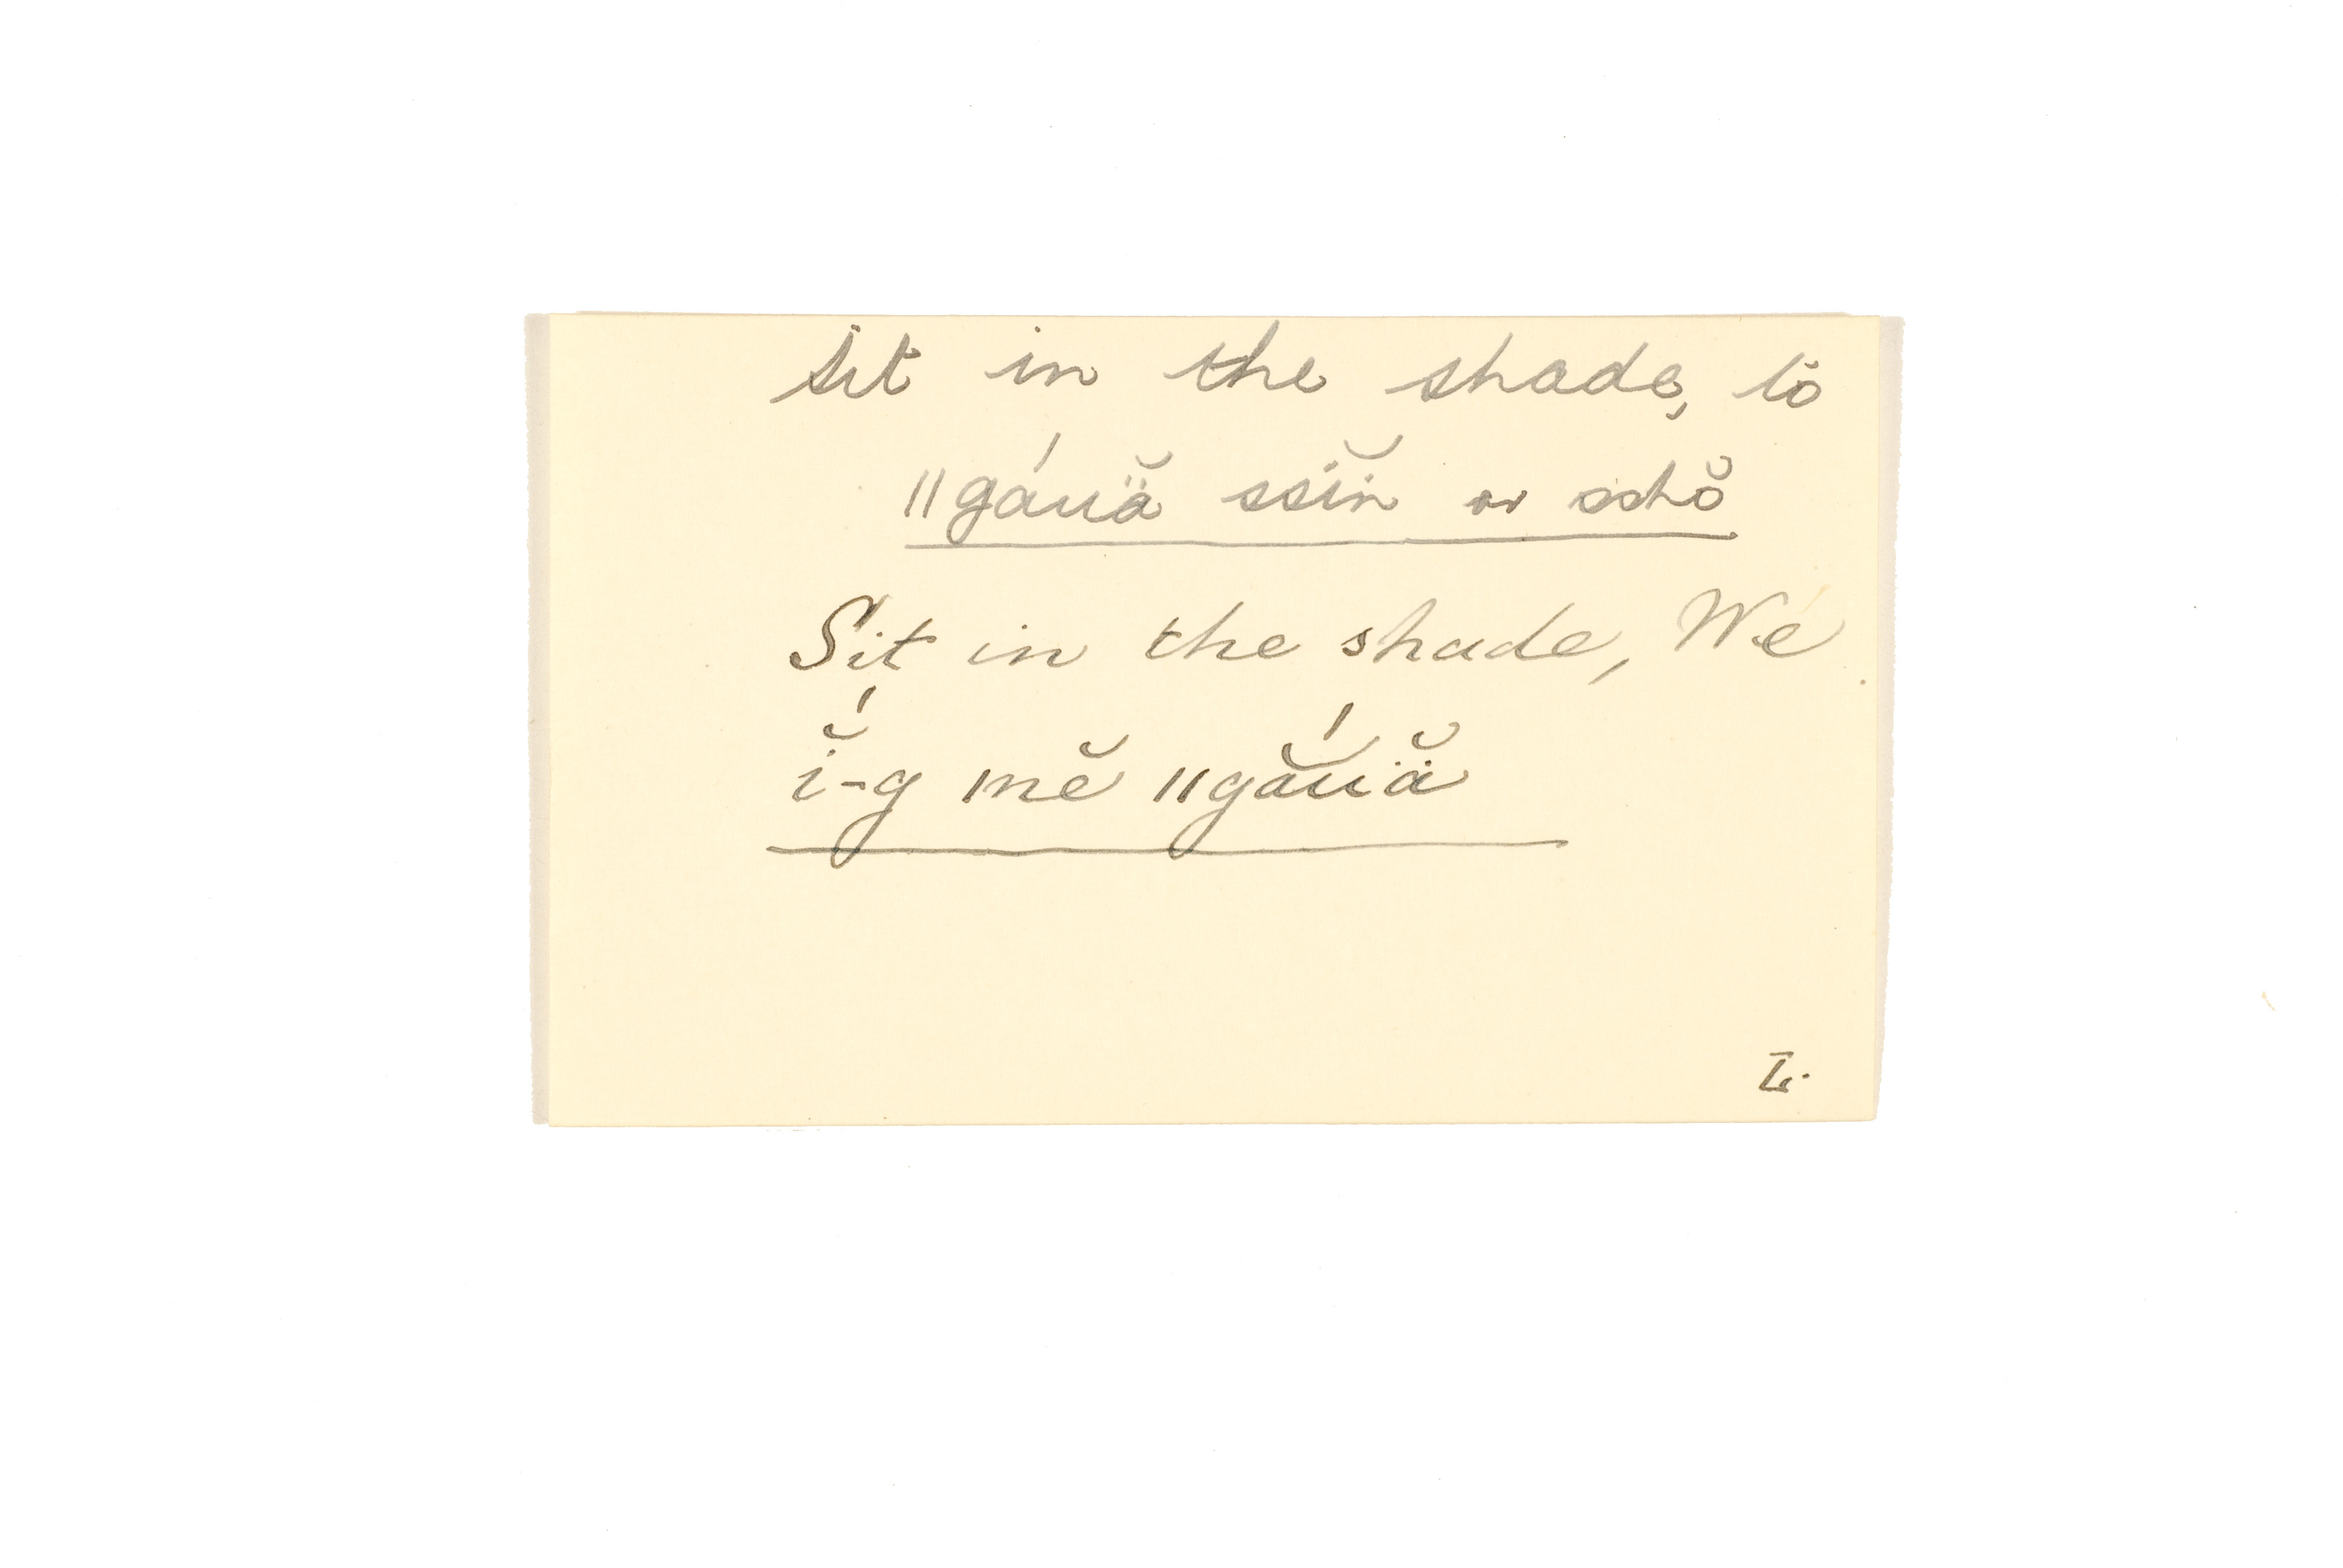 Sit in the shade, to
ǁgáuä̆ ssĭn or sshŏ
Sit in the shade, We
ĭ́-g ǀnĕ ǁgắŭä̆
L.